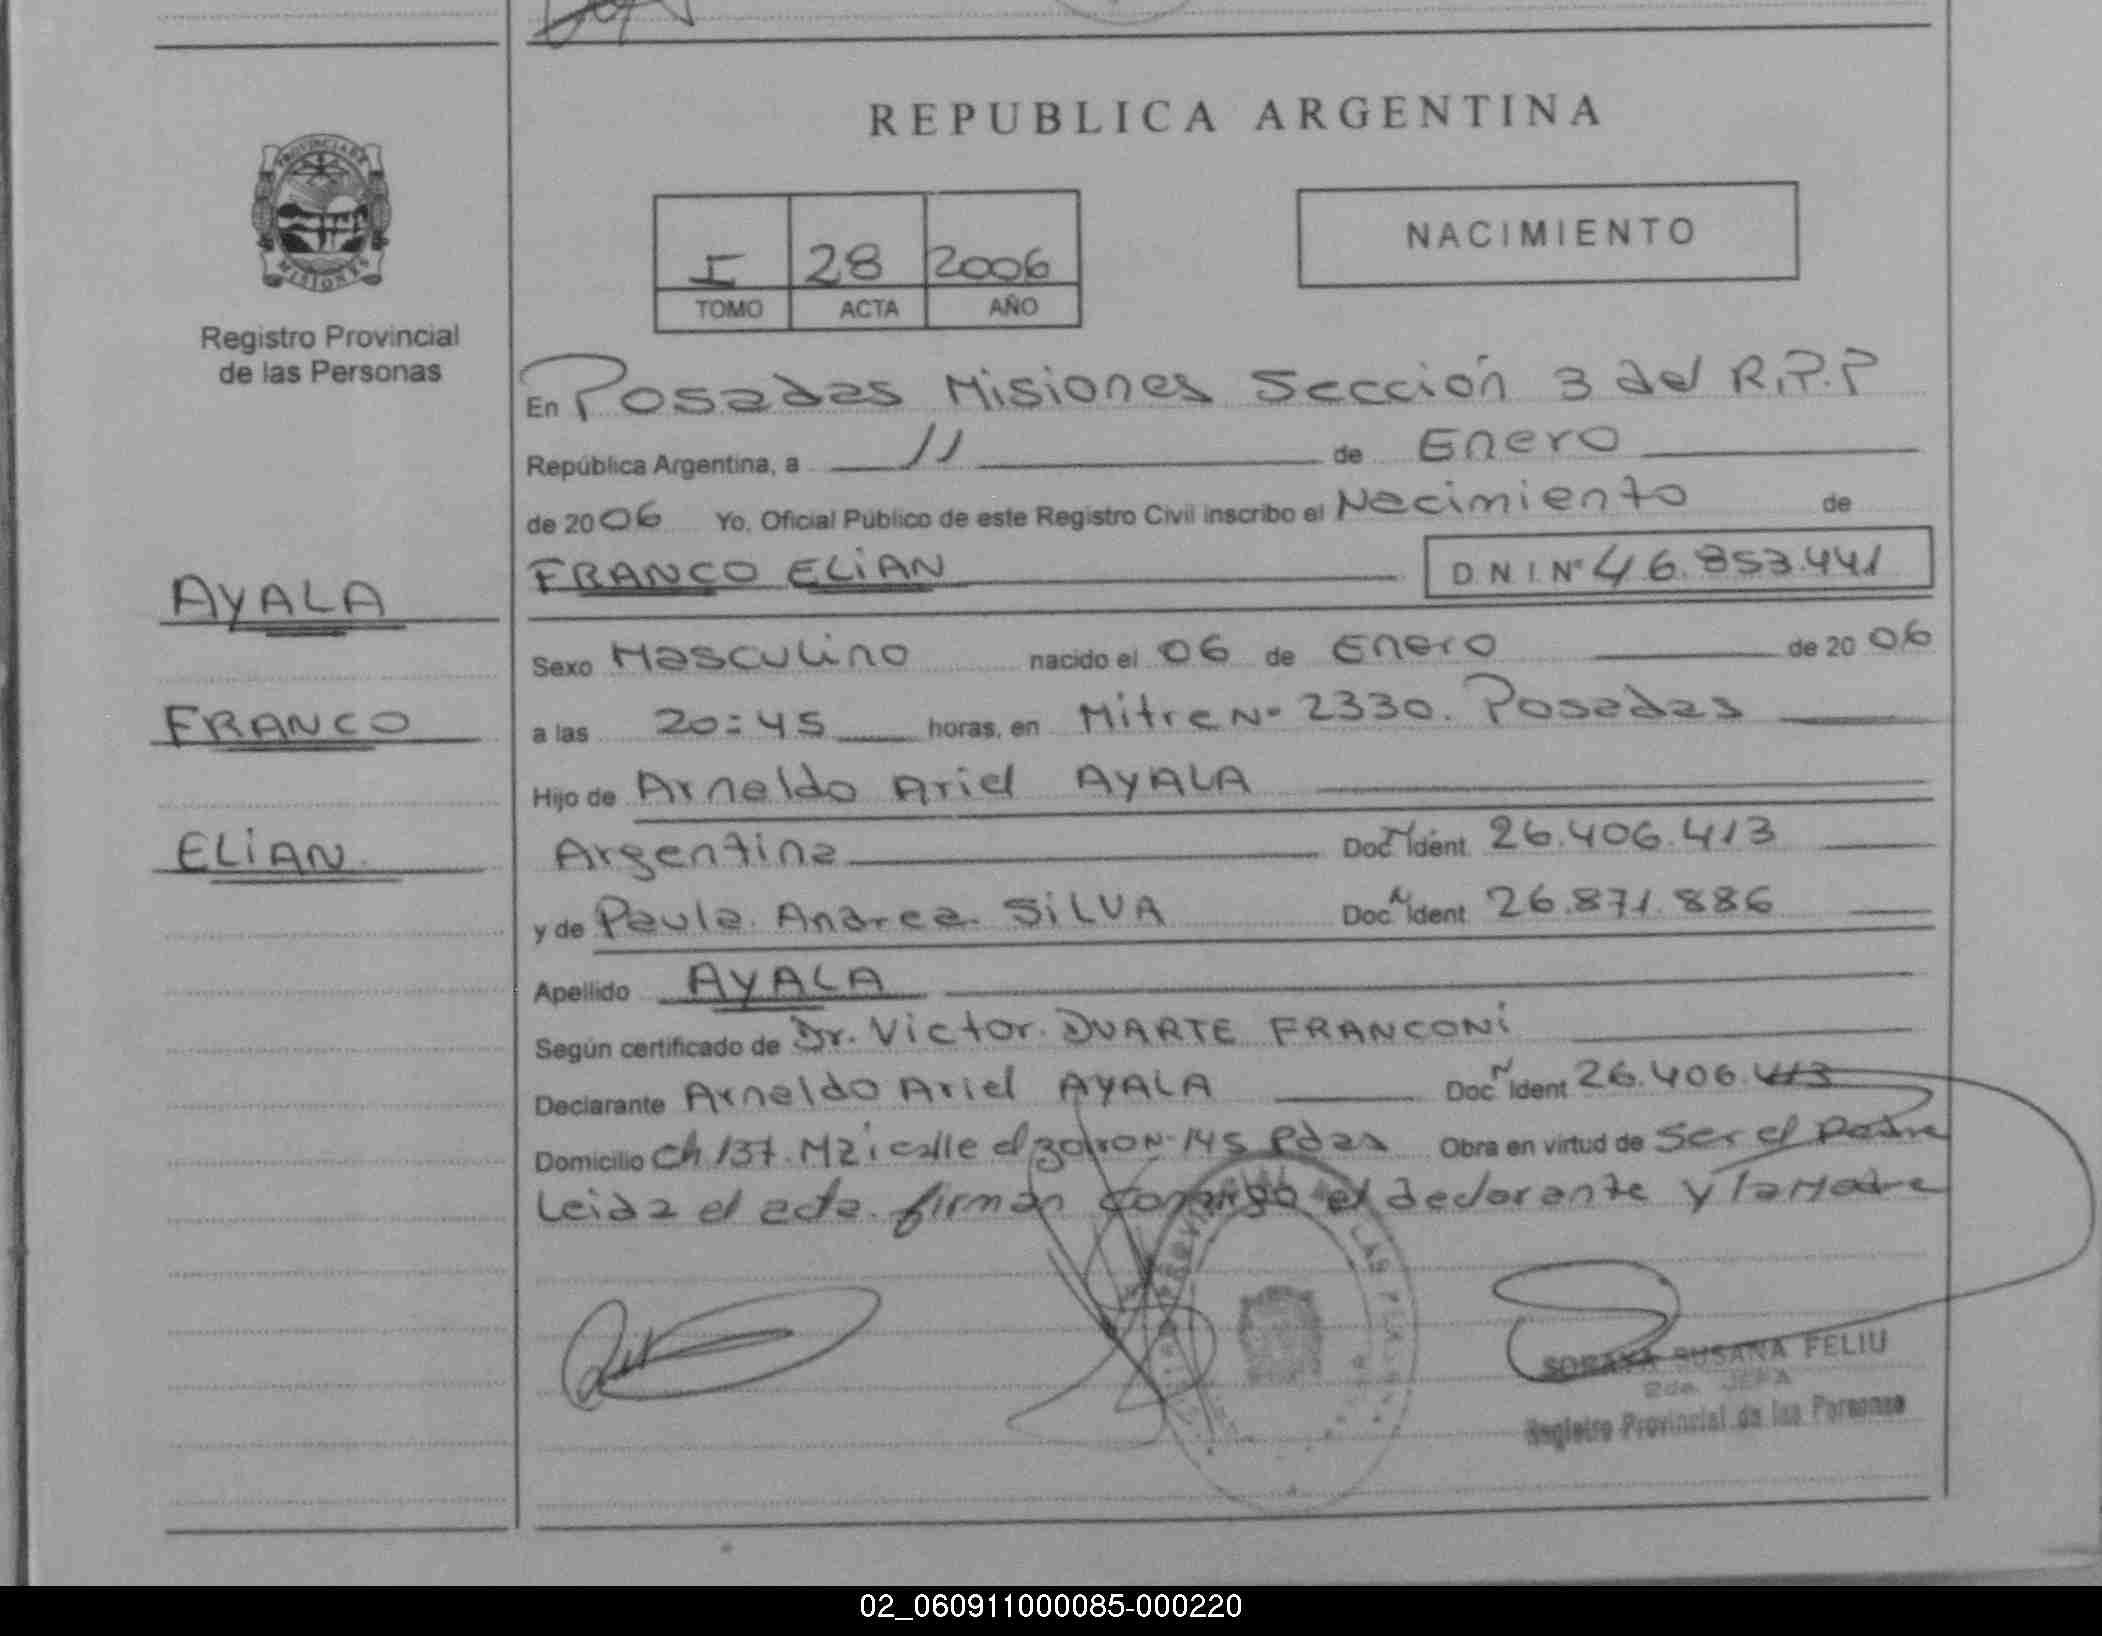 REPUBLICA ARGENTINA
PROVINCIA DE
MISIONES
Registro Provincial
de las Personas
NACIMIENTO
I 28 2006
TOMO ACTA AÑO
En Posadas Misiones Sección 3 del R.P.P
República Argentina, a 11 de Enero
de 2006 Yo, Oficial Público de este Registro Civil inscribo el Nacimiento de
FRANCO ELIAN D N I Nº 46.853.441
AYALA
FRANCO
ELIAN
Sexo Masculino nacido el 06 de Enero de 2006
a las 20:45 horas, en Mitre Nº 2330. Posadas
Hijo de Arnaldo Ariel AYALA
Argentina Doc N Ident 26.406.413
y de Paula Andrea SILVA Doc N Ident 26.871.886
Apellido AYALA
Según certificado de Dr. Victor DUARTE FRANCONI
Declarante Arnaldo Ariel AYALA Doc N Ident 26.406.413
Domicilio Ch 137. Mz i calle el Nº 145 Pdas Obra en virtud de Ser el Padre
Leida el acta firman conmigo el declarante y la Madre
SORAYA SUSANA FELIU
2da. JEFA
Registro Provincial de las Personas
02_060911000085-000220